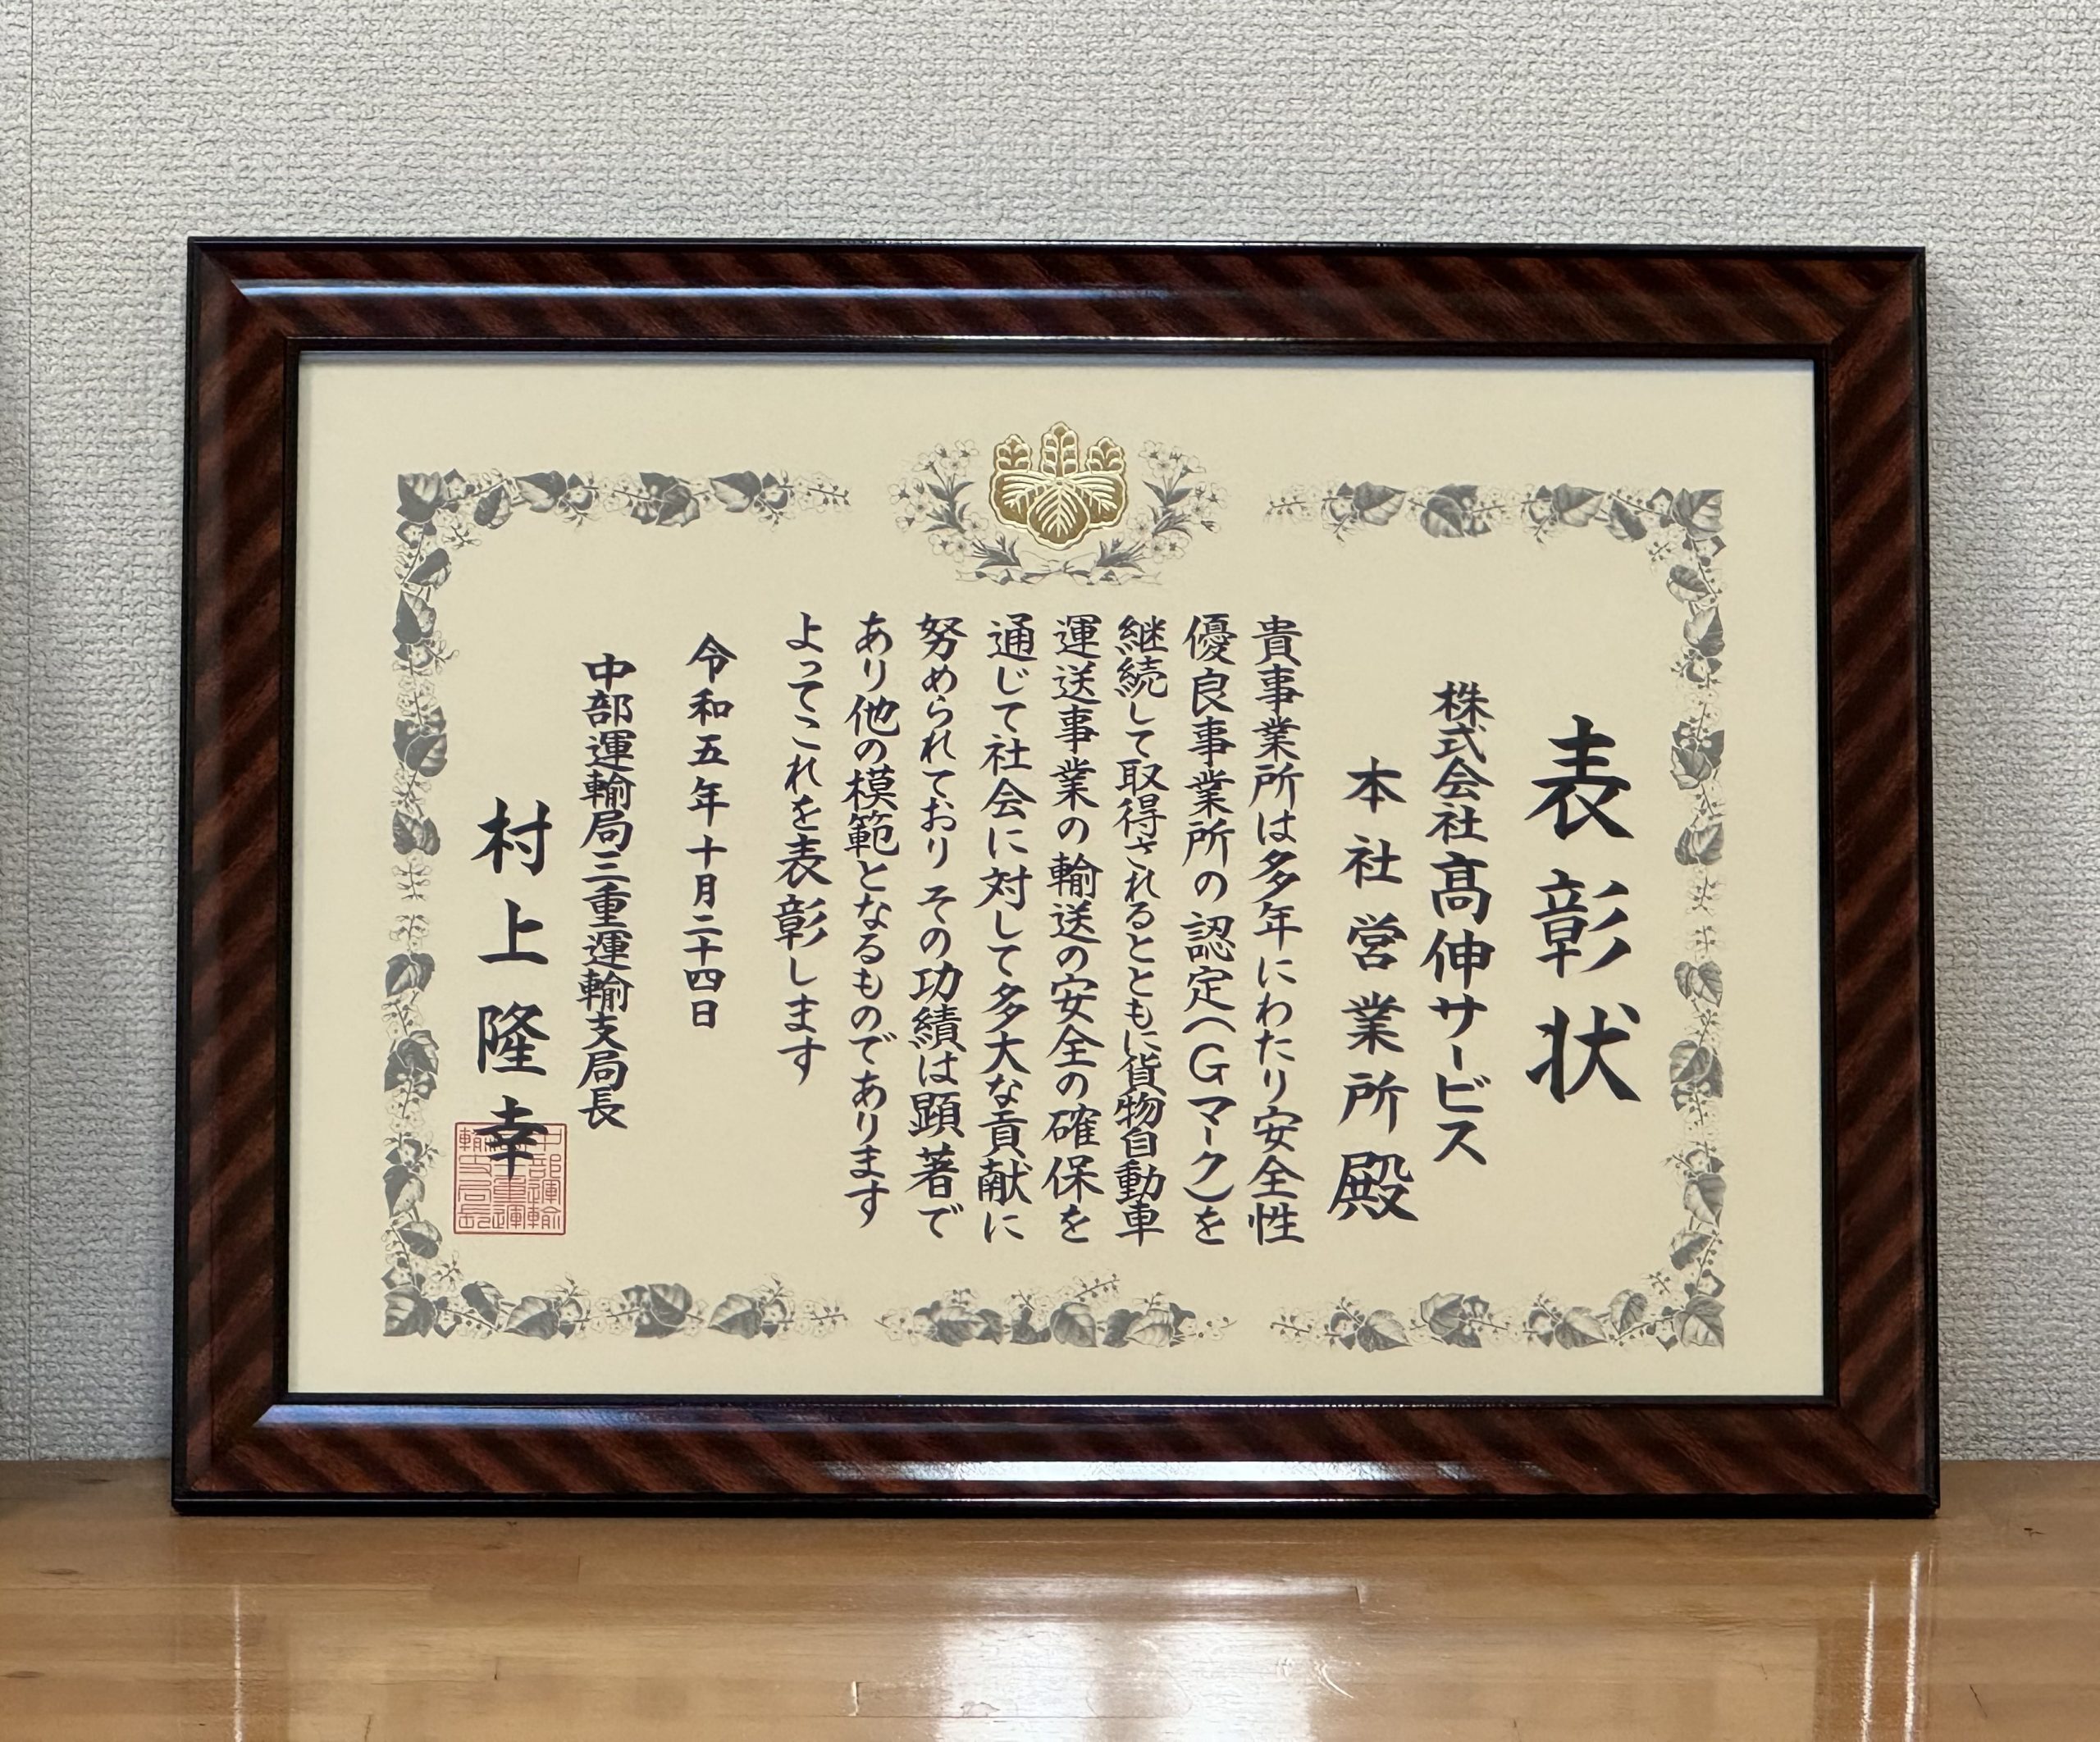 表彰状
株式会社髙伸サービス
本社営業所殿
貴事業所は多年にわたり安全性
優良事業所の認定(Gマーク)を
継続して取得されるとともに貨物自動車
運送事業の輸送の安全の確保を
通じて社会に対して多大な貢献に
努められており その功績は顕著で
あり他の模範となるものであります
よってこれを表彰します
令和五年十月二十四日
中部運輸局三重運輸支局長
村上隆幸
中部運輸
局三重運
輸支局長